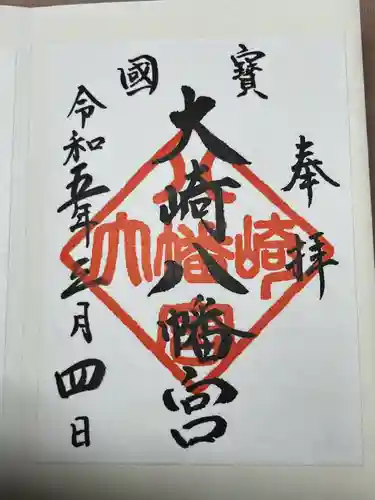 奉拝
寶國
大崎八幡宮
令和五年三月四日